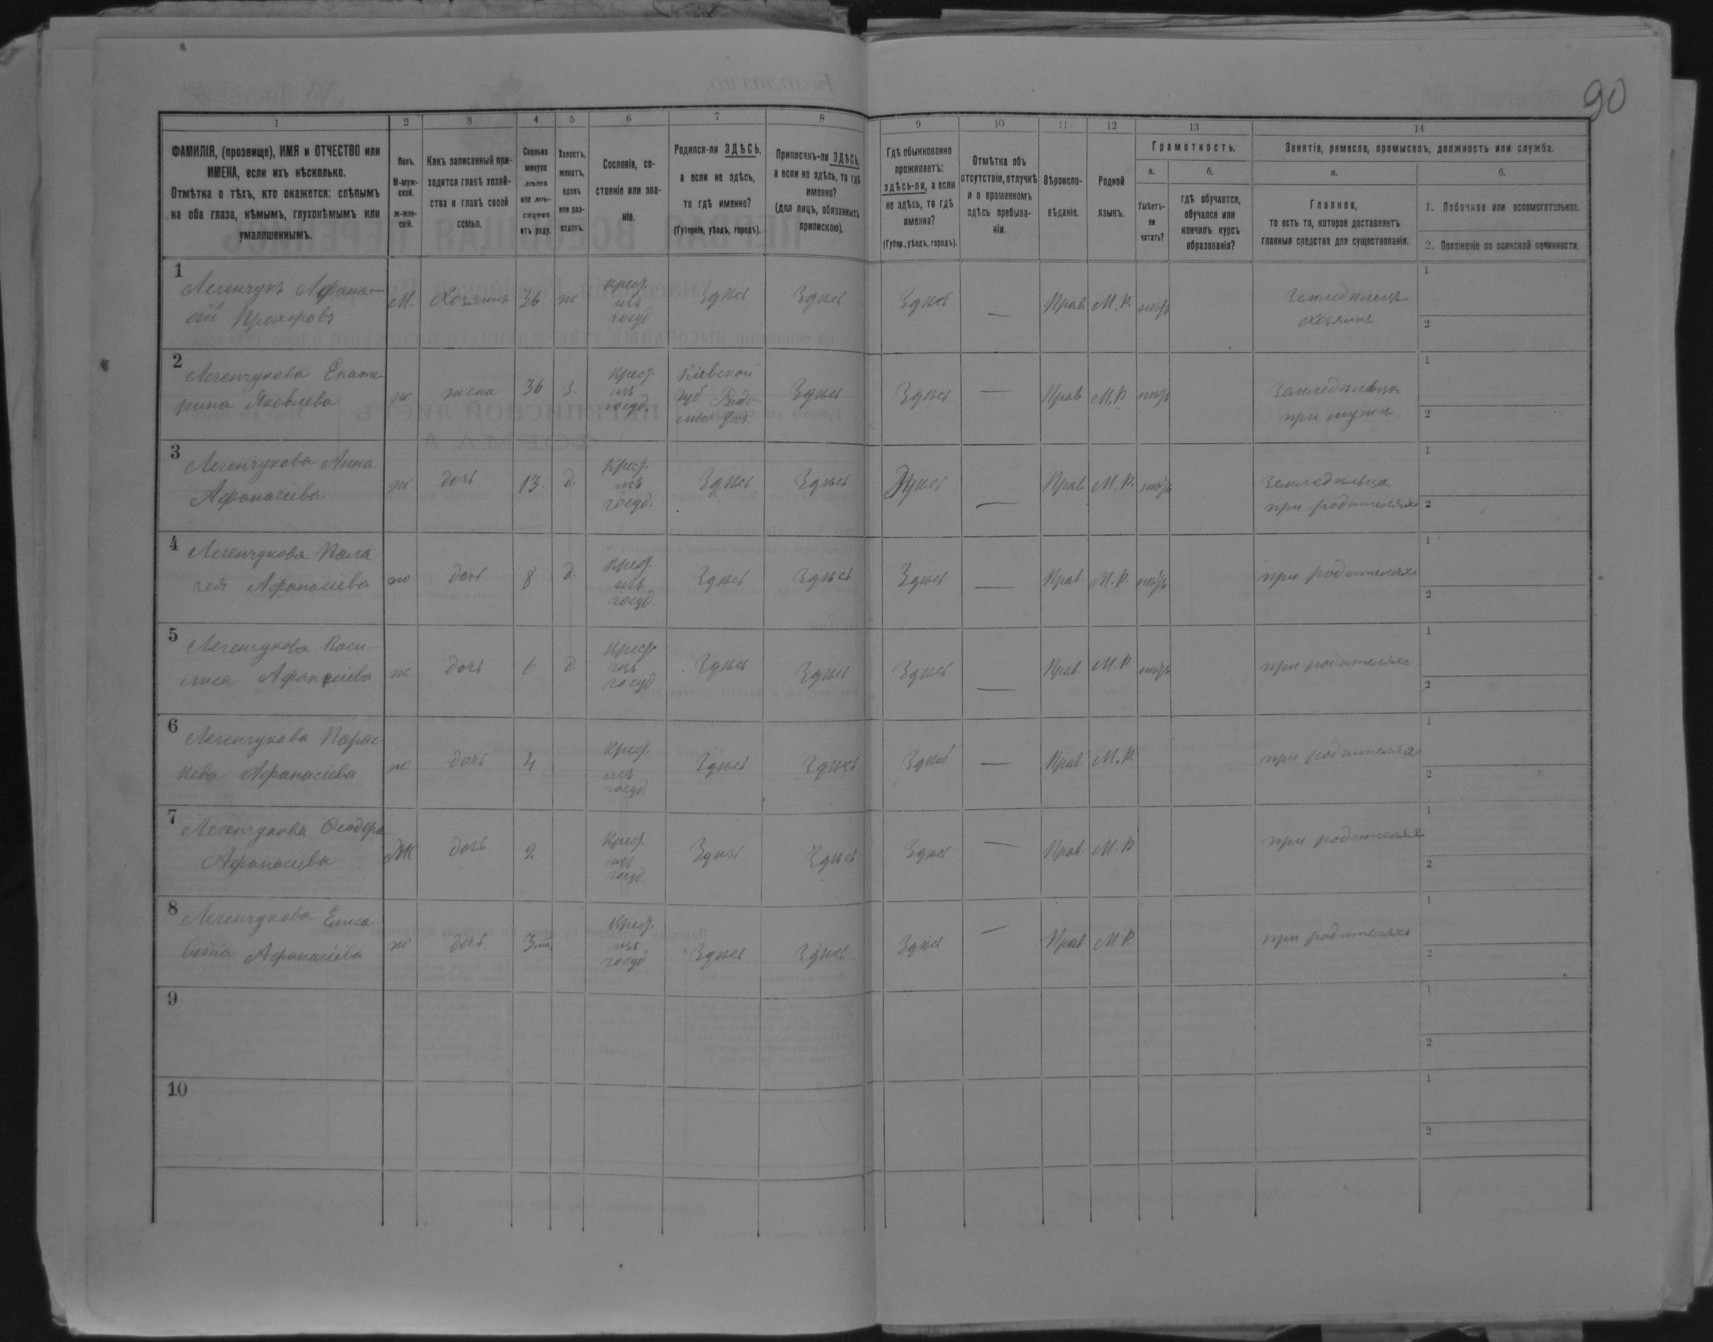 90
1 2 3 4 5 6 7 8 9 10 11 12 13 14
ФАМИЛІЯ, (прозвище), ИМЯ и ОТЧЕСТВО или
ИМЕНА, если ихъ нѣсколько.
Отмѣтка о тѣхъ, кто окажется: слѣпымъ
на оба глаза, нѣмымъ, глухонѣмымъ или
умалишеннымъ.
Полъ.
М-муж-
ской.
ж-жен-
скій.
Какъ записанный при-
ходится главѣ хозяй-
ства и главѣ своей
семьи.
Сколько
минуло
лѣтъ
или мѣ-
сяцевъ
отъ роду.
Холостъ,
женатъ,
вдовъ
или раз-
веденъ.
Сословіе, со-
стояніе или зва-
ніе.
Родился-ли ЗДѢСЬ,
а если не здѣсь,
то гдѣ именно?
(Губернія, уѣздъ, городъ).
Приписанъ-ли ЗДѢСЬ,
а если не здѣсь, то гдѣ
именно?
(для лицъ, обязанныхъ
припискою).
Гдѣ обыкновенно
проживаетъ:
здѣсь-ли, а если
не здѣсь, то гдѣ
именно?
(Губер., уѣздъ, городъ).
Отмѣтка объ
отсутствіи, отлучкѣ
и о временномъ
здѣсь пребыва-
ніи.
Вѣроиспо-
вѣданіе.
Родной
языкъ.
Грамотность.
а.
Умѣетъ-
ли
читать?
б.
гдѣ обучается,
обучался или
кончилъ курсъ
образованія?
Занятіе, ремесло, промыселъ, должность или служба.
а.
Главное,
то есть то, которое доставляетъ
главныя средства для существованія.
б.
1. Побочное или вспомогательное.
2. Положеніе по воинской повинности.
1
Легенчукъ Афана-
сій Прохоровъ
М.
Хозяинъ
36
ж
крест.
изъ
госуд
Здѣсь
Здѣсь
Здѣсь
—
Прав
М.Р.
нѣтъ
Земледѣлецъ
хозяинъ
1
2
2
Легенчукова Екате-
рина Яковлева
ж
жена
36
з.
крест.
изъ
госуд.
Кіевской
губ
Здѣсь
Здѣсь
—
Прав
М.Р
нѣтъ
Земледѣлица
при мужѣ
1
2
3
Легенчукова Анна
Афанасіева
ж
дочь
13.
д.
крест.
изъ
госуд.
Здѣсь
Здѣсь
Здѣсь
—
Прав
М.Р.
нѣтъ
земледѣлица
при родителяхъ
1
2
4
Легенчукова Пела
гея Афанасіева
ж
дочь
8
д.
крест.
изъ
госуд.
Здѣсь
Здѣсь
Здѣсь
—
Прав.
М.Р.
нѣтъ
при родителяхъ
1
2
5
Легенчукова Васи-
лиса Афанасіева
ж
дочь
6
д
крест
изъ
госуд
Здѣсь
Здѣсь
Здѣсь
—
Прав.
М.Р.
нѣтъ
при родителяхъ
1
2
6
Легенчукова Парас-
кева Афанасіева
ж
дочь
4
крест.
изъ
госуд.
Здѣсь
Здѣсь
Здѣсь
—
Прав
М.Р.
при родителяхъ
1
2
7
Легенчукова Ѳеодора
Афанасіева
Ж
дочь
2
крест.
изъ
госуд.
Здѣсь
Здѣсь
Здѣсь
—
Прав
М.Р
при родителяхъ
1
2
8
Легенчукова Елиса
бета Афанасіева
ж
дочь
3 м.
крест.
изъ
госуд
Здѣсь
Здѣсь
Здѣсь
—
Прав
М.Р.
при родителяхъ
1
2
9
1
2
10
1
2